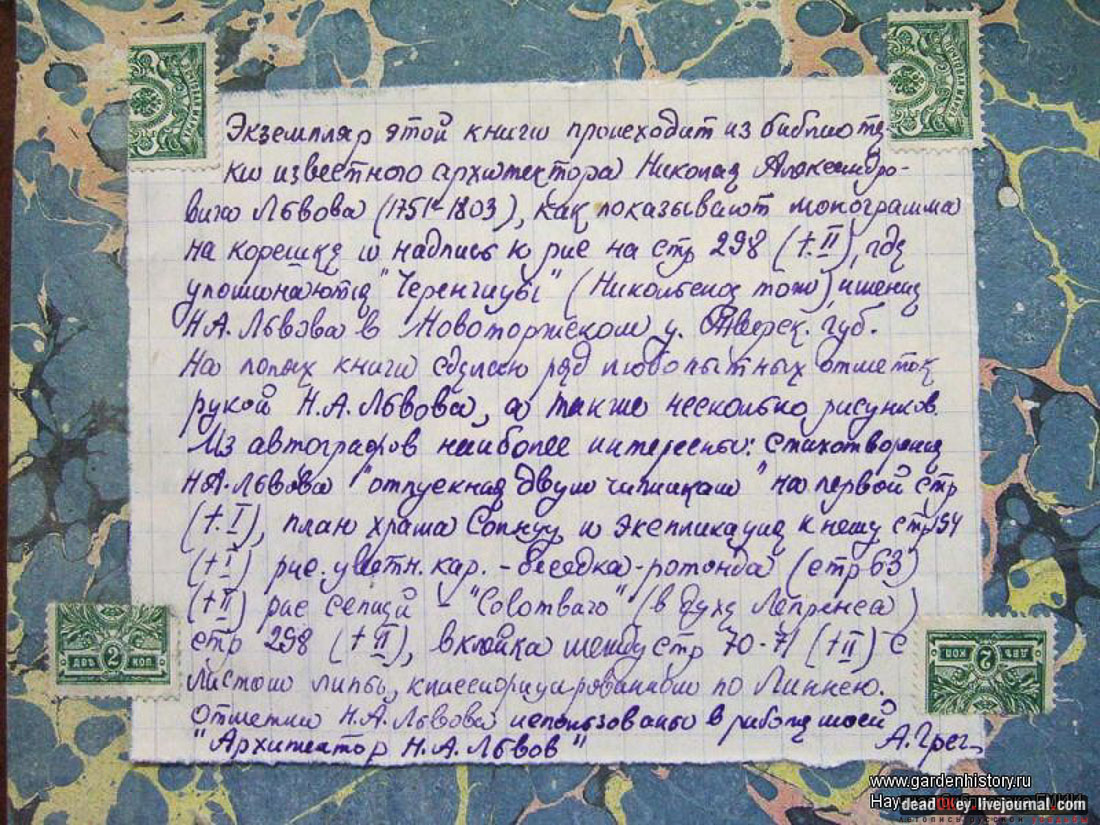 Экземпляр этой книги происходит из библиоте-
ки известного архитектора Николая Александро-
вича Львова (1751-1803), как показывают монограмма
на корешке и надпись к рис на стр 298 (т. II), где
упоминаются "Черенчицы" (Никольское тож), имение
Н.А. Львова в Новоторжском у. Тверск. губ.
На полях книги сделан ряд любопытных отметок
рукой Н.А. Львова, а также несколько рисунков.
Из автографов наиболее интересны: стихотворение
Н.А. Львова "отпускная двум чижикам" на первой стр
(т. I), план храма и экспликация к нему стр
(т I) рис. цветн. кар. - беседка-ротонда (стр 63)
(т II) рис сепией - (в духе Лепренса)
стр 298 (т II), вклейка между стр 70-71 (т II) с
листом липы, классифицированным по Линнею.
Отметки Н.А. Львова использованы в работе моей
"Архитектор Н.А. Львов" А. Грег
ДВѢ 2 КОП
ДВѢ 2 КОП
www.gardenhistory.ru
livejournal.com